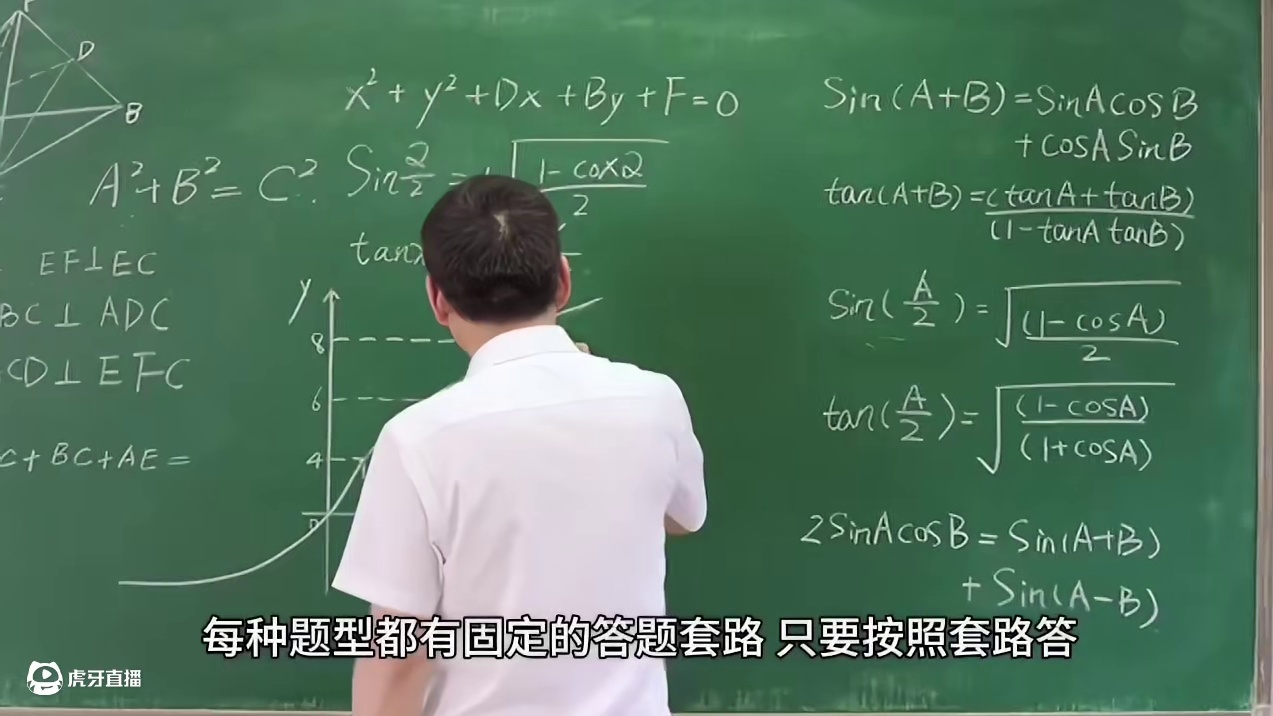 D
B
x² + y² + Dx + By + F = 0
A² + B² = C²
Sin 2/2 =
1 - cox2
2
tanx
EF⊥EC
BC ⊥ ADC
CD⊥ EFC
C + BC + AE =
y
8
6
4
Sin(A+B) = SinAcosB
+ cosASinB
tan(A+B) = (tanA + tanB)
(1 - tanA tanB)
Sin(A/2) = √(1 - cosA)
2
tan(A/2) = √(1 - cosA)
(1+cosA)
2SinAcosB = Sin(A+B)
+ Sin(A-B)
每种题型都有固定的答题套路 只要按照套路答
虎牙直播